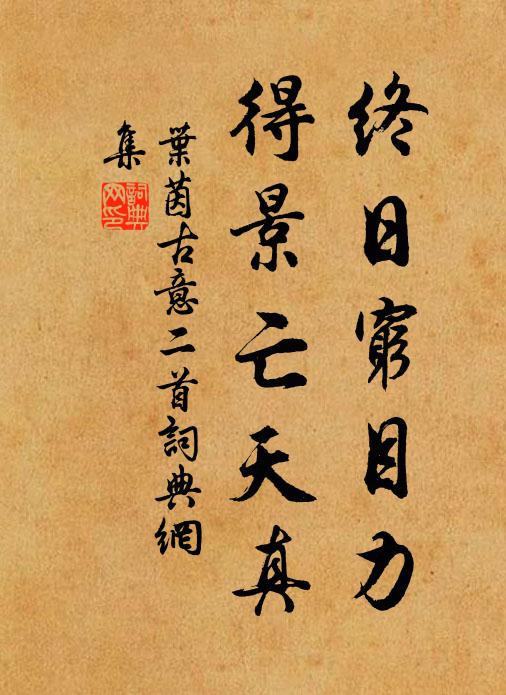 終日窮目力
得景亡天真
葉茵古意二首詞典網
集
詞典
网印